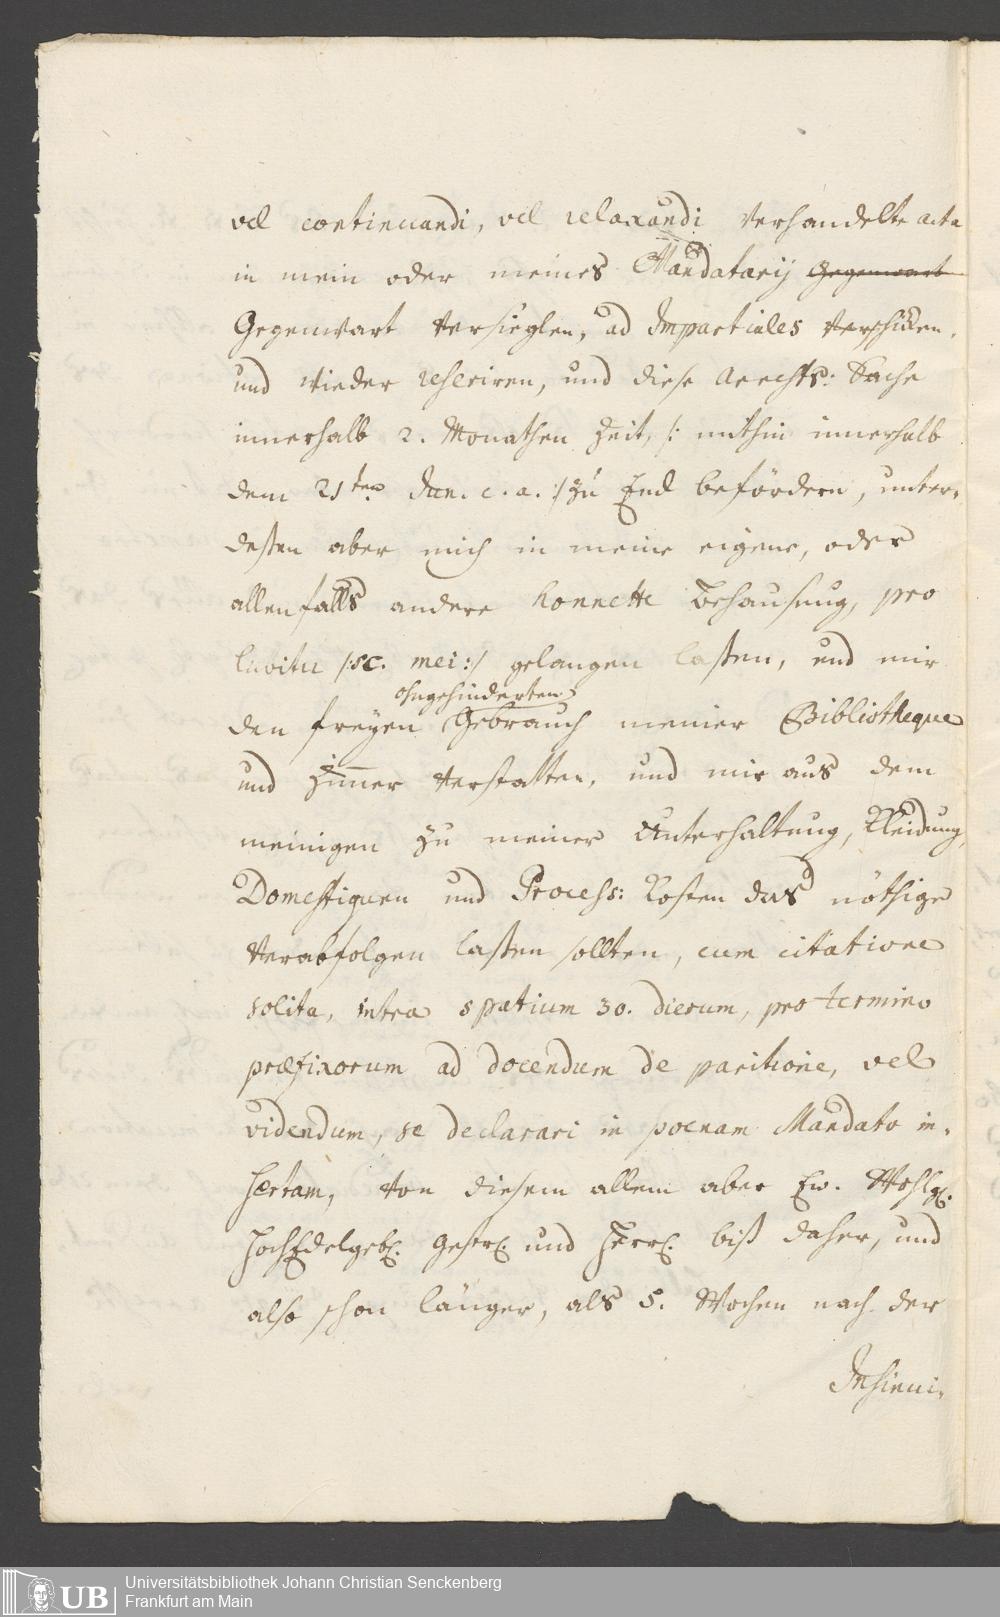 vel continuandi, vel relaxandi verhandelte acta
in mein oder meines Mandatarij Gegenwart
Gegenwart versieglen, ad Impartiales verschicken,
und wieder referiren, und diese Rechts: Sache
innerhalb 2. Monathen Zeit, /: mithin innerhalb
dem 21ten Jan. c. a. :/ zu End befördern, unter-
deßen aber mich in meine eigene, oder
allenfalls andere honnette Behausung, pro
lubitu /:sc. mei:/ gelangen laßen, und mir
ohngehinderten
den freyen Gebrauch meiner Bibliotheque
und Zimer verstatten, und mir aus dem
meinigen zu meiner Unterhaltung, Kleidung,
Domestiquen und Process: Kosten das nöthige
verabfolgen laßen sollten, cum citatione
solita, intra spatium 30. dierum, pro termino
præfixorum ad docendum de paritione, vel
videndum, se declarari in poenam Mandato in-
sertam, von diesem allem aber Ew. Wohlg.
HochEdelgeb. Gestr. und Herrl. biß daher, und
also schon länger, als 5. Wochen nach der
Insinui-
Universitätsbibliothek Johann Christian Senckenberg
Frankfurt am Main
UB